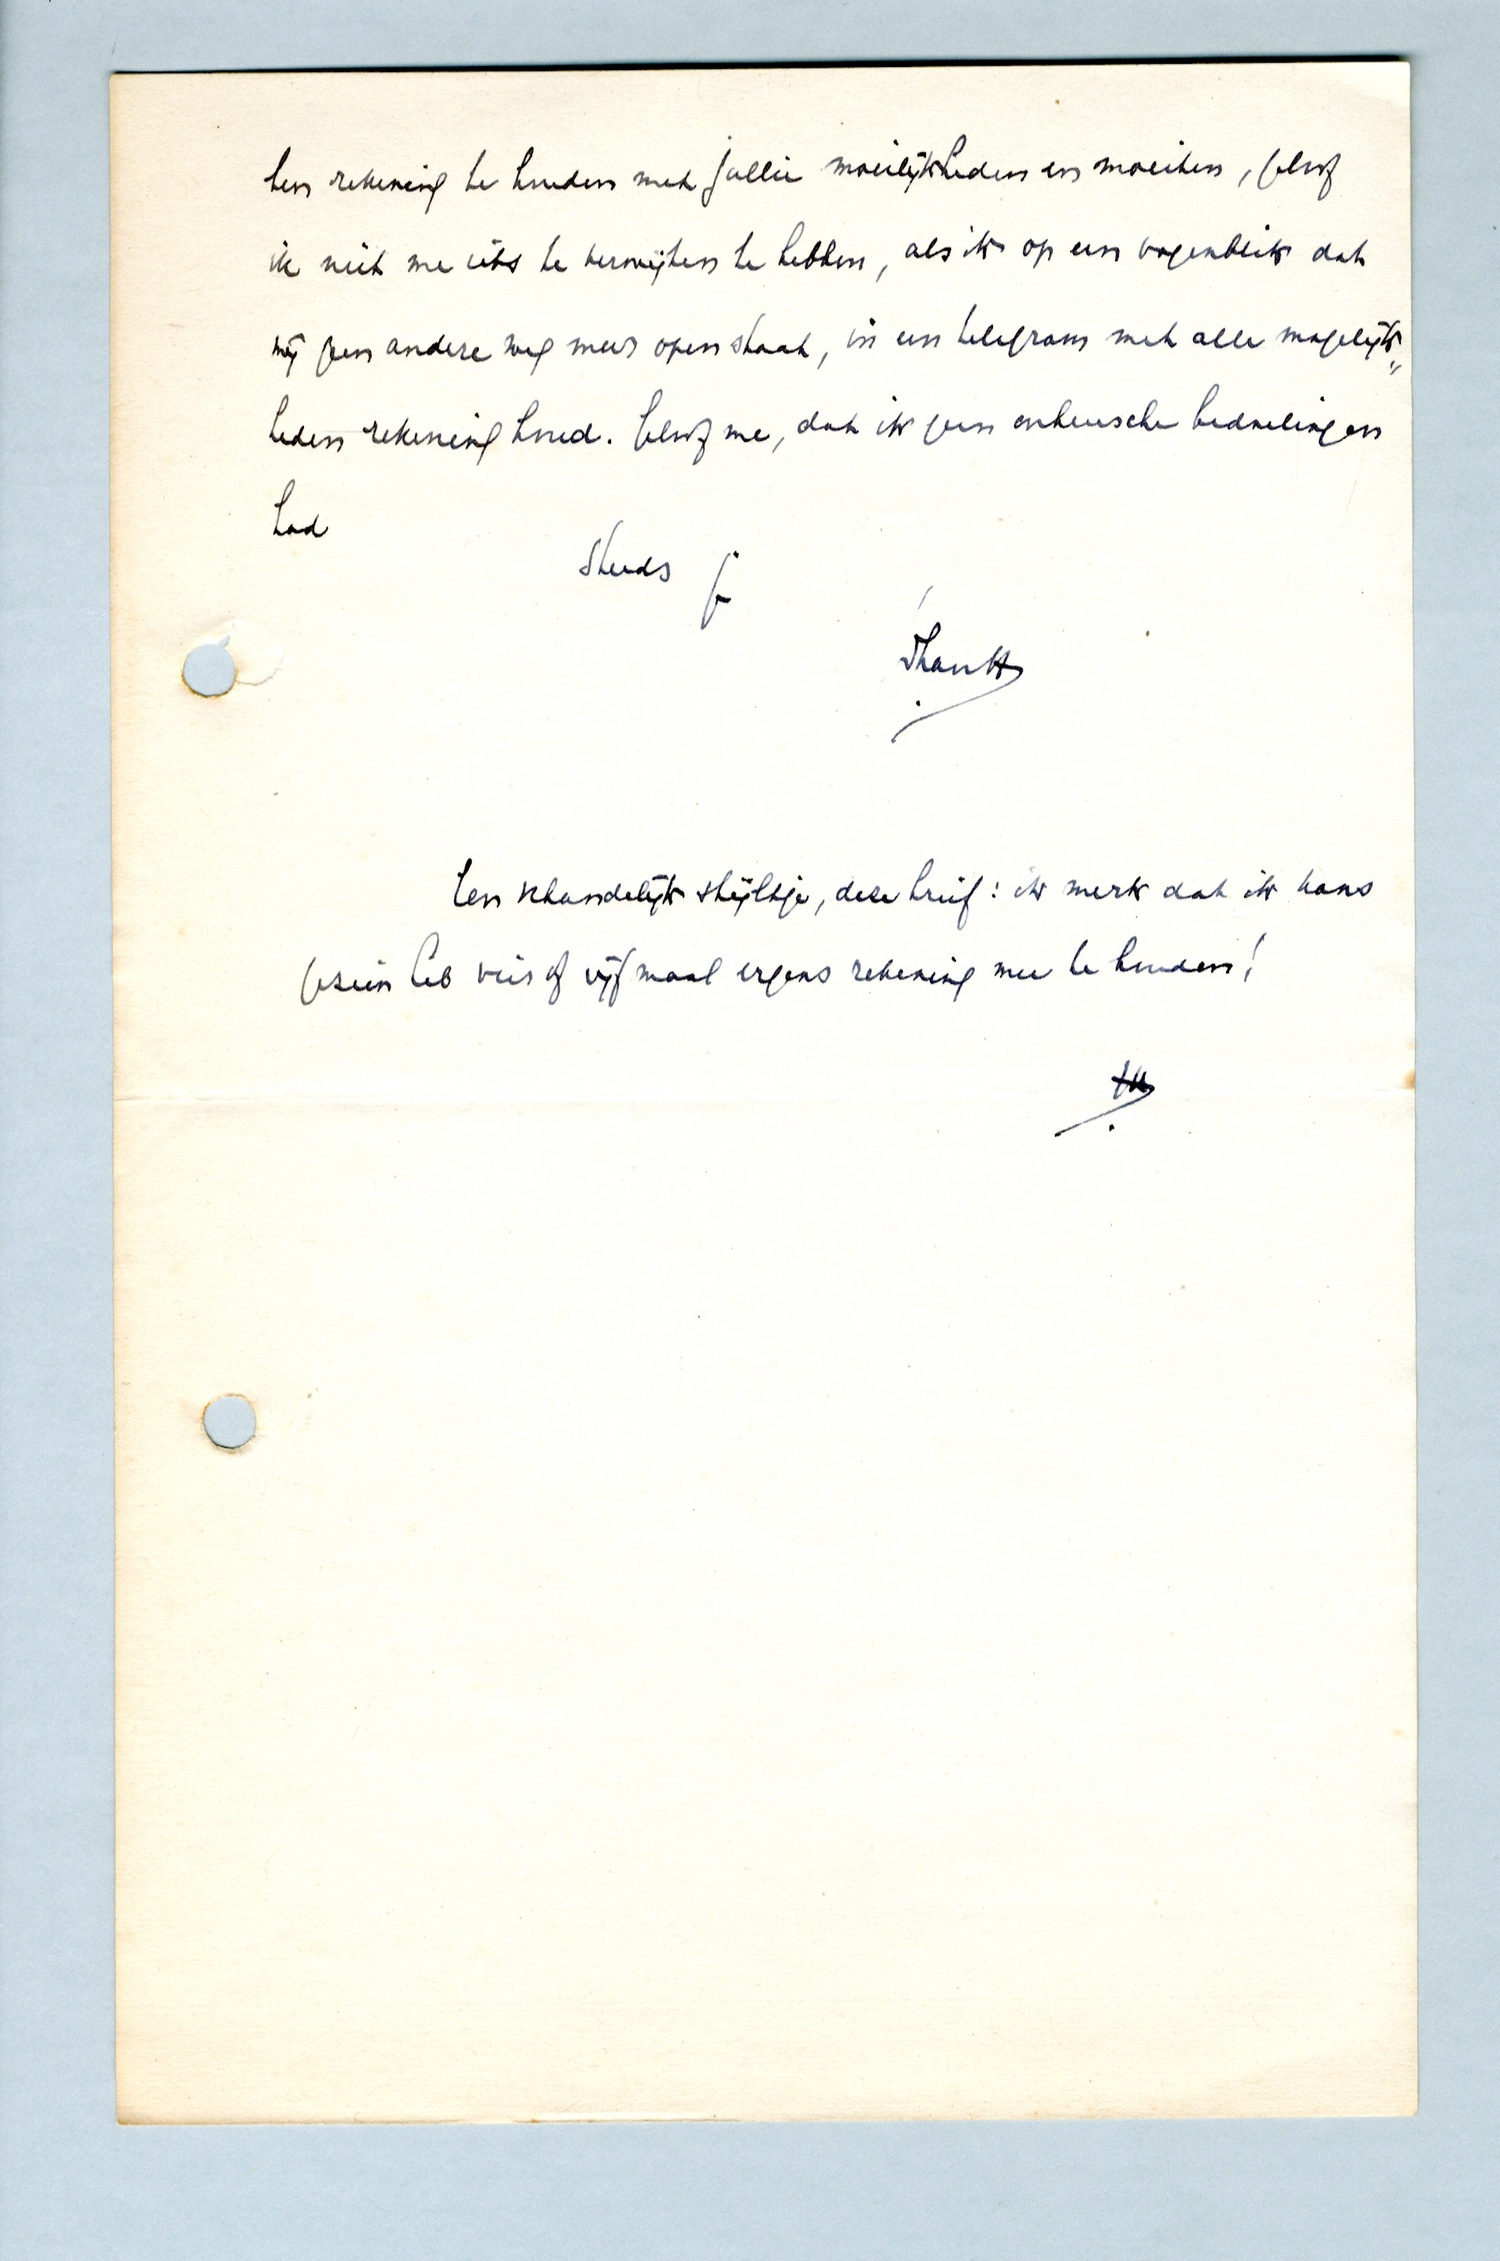 ten rekening te houden met jullie moeilijkheden en moeiten, geloof
ik niet me iets te verwijten te hebben, als ik op een oogenblik dat
mij geen andere weg meer open staat, in een telegram met alle mogelijk„
heden rekening houd. Geloof me, dat ik geen onheusche bedoelingen
had
Steeds je
Een schandelijk stijltje, deze brief: ik merk dat ik kans
gezien heb vier of vijf maal ergens rekening mee te houden!